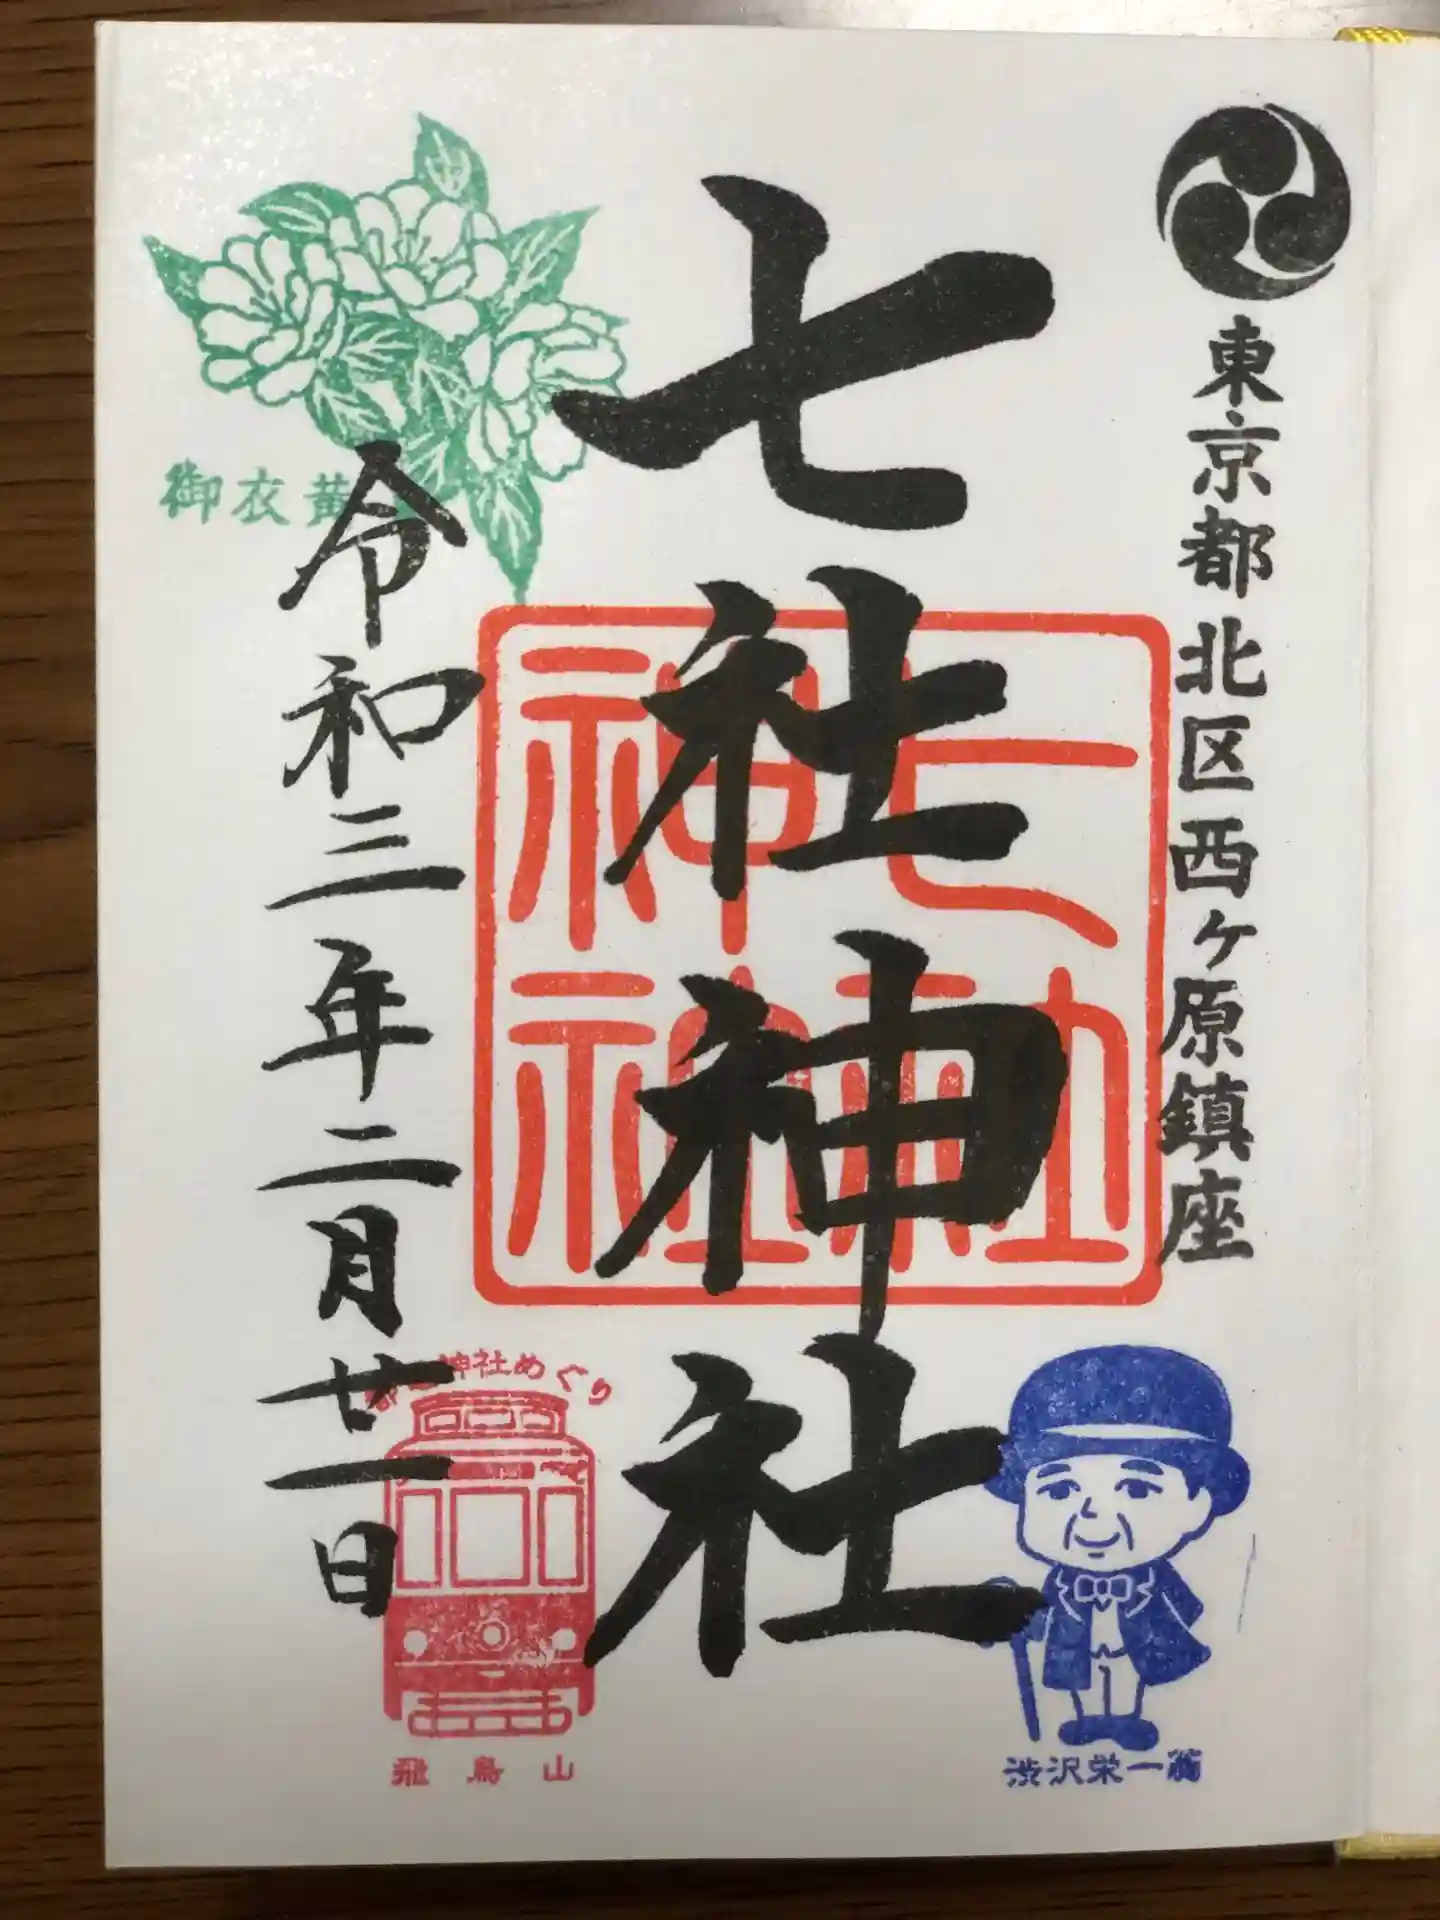 東京都北区西ヶ原鎮座
七社神社
七社神社
令和三年二月廿一日
御衣黄
神社めぐり
飛鳥山
渋沢栄一翁